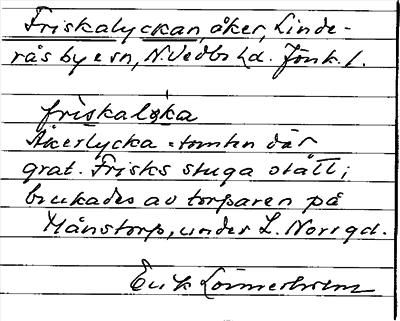 Friskalyckan, åker, Linde-
rås by esn, N. Vedbo hd. Jönk. l.
friskalỳka
Åkerlycka = tomten där
grat. Frisks stuga stått;
brukades av torparen på
Månstorp, under L. Norrgd.
Erik Lönnerholm